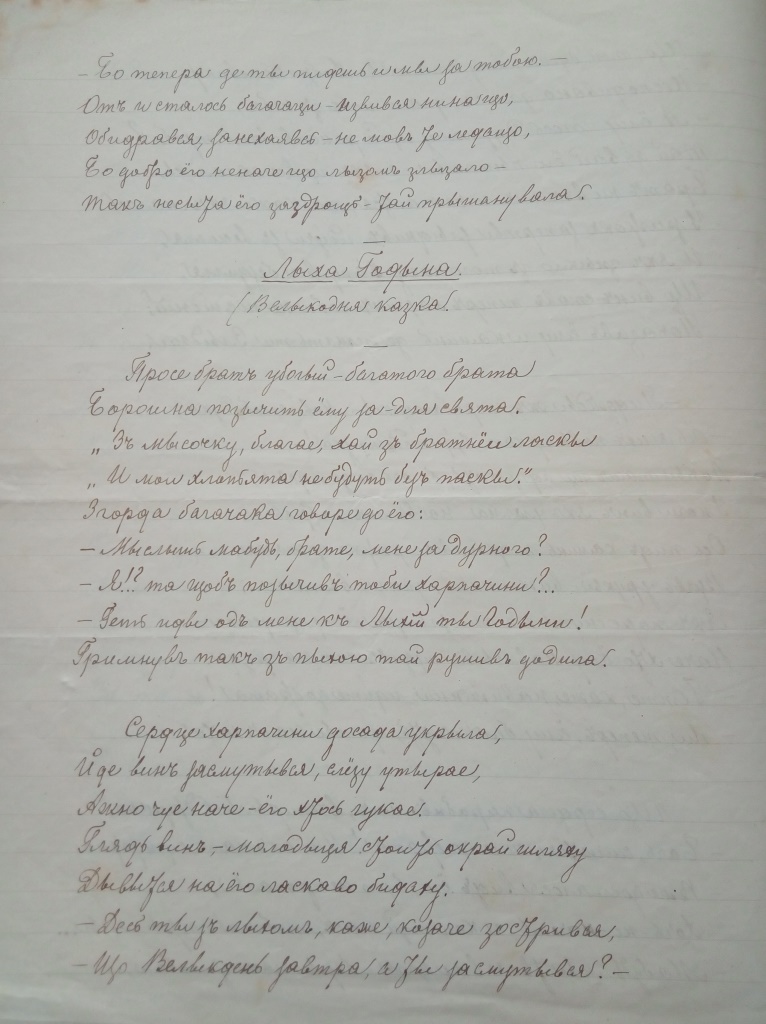 – Бо тепера де ты пидешь и мы за тобою. –
Отъ и сталось багачаци – извився нинащо,
Обидрався, занехаявсь – не мовъ те ледащо,
Бо добро ёго неначе що лызомъ злызало –
Такъ несыта ёго заздрощь – тай прытанувала.
Лыха Годына.
(Велыкодня казка).
Просе братъ убогый – багатого брата
Борошна позычить ёму за-для свята.
„Зъ мысочку, благае, хай зъ братнёи ласкы
„И мои хлопьята не будуть безъ паскы."
Згорда багачака говоре до ёго:
– Мыслышь мабудь, брате, мене за дурного?
– Я!!? та щобъ позычивъ тоби харпачини?...
– Геть иды одъ мене къ Лыхій ты Годыни!
Гримнувъ такъ зъ пыхою тай рушивъ до дила.
Сердце харпачини досада укрыла,
Йде винъ засмутывся, слёзу утырае,
Ажно чуе наче – ёго хтось гукае.
Глядь винъ, – молодыця стоить окрай шляху
Дывытся на ёго ласкаво бидаху.
– Десь ты зъ лыхомъ, каже, козаче зострився,
– Що Велыкдень завтра, а ты засмутывся? –